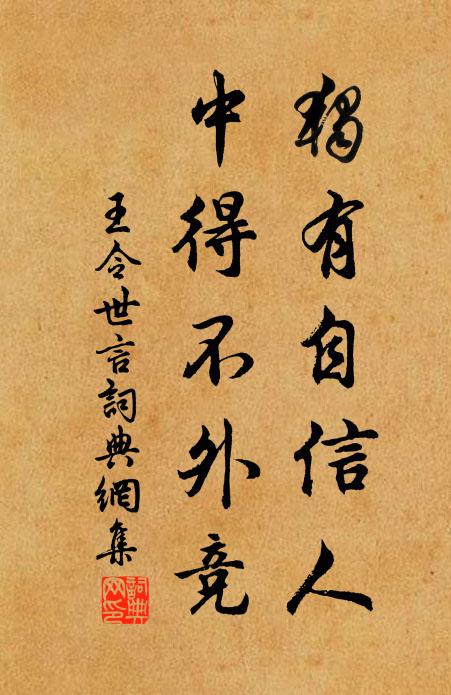 獨有自信人
中得不外竞
王令世言詞典網集
詞典网印